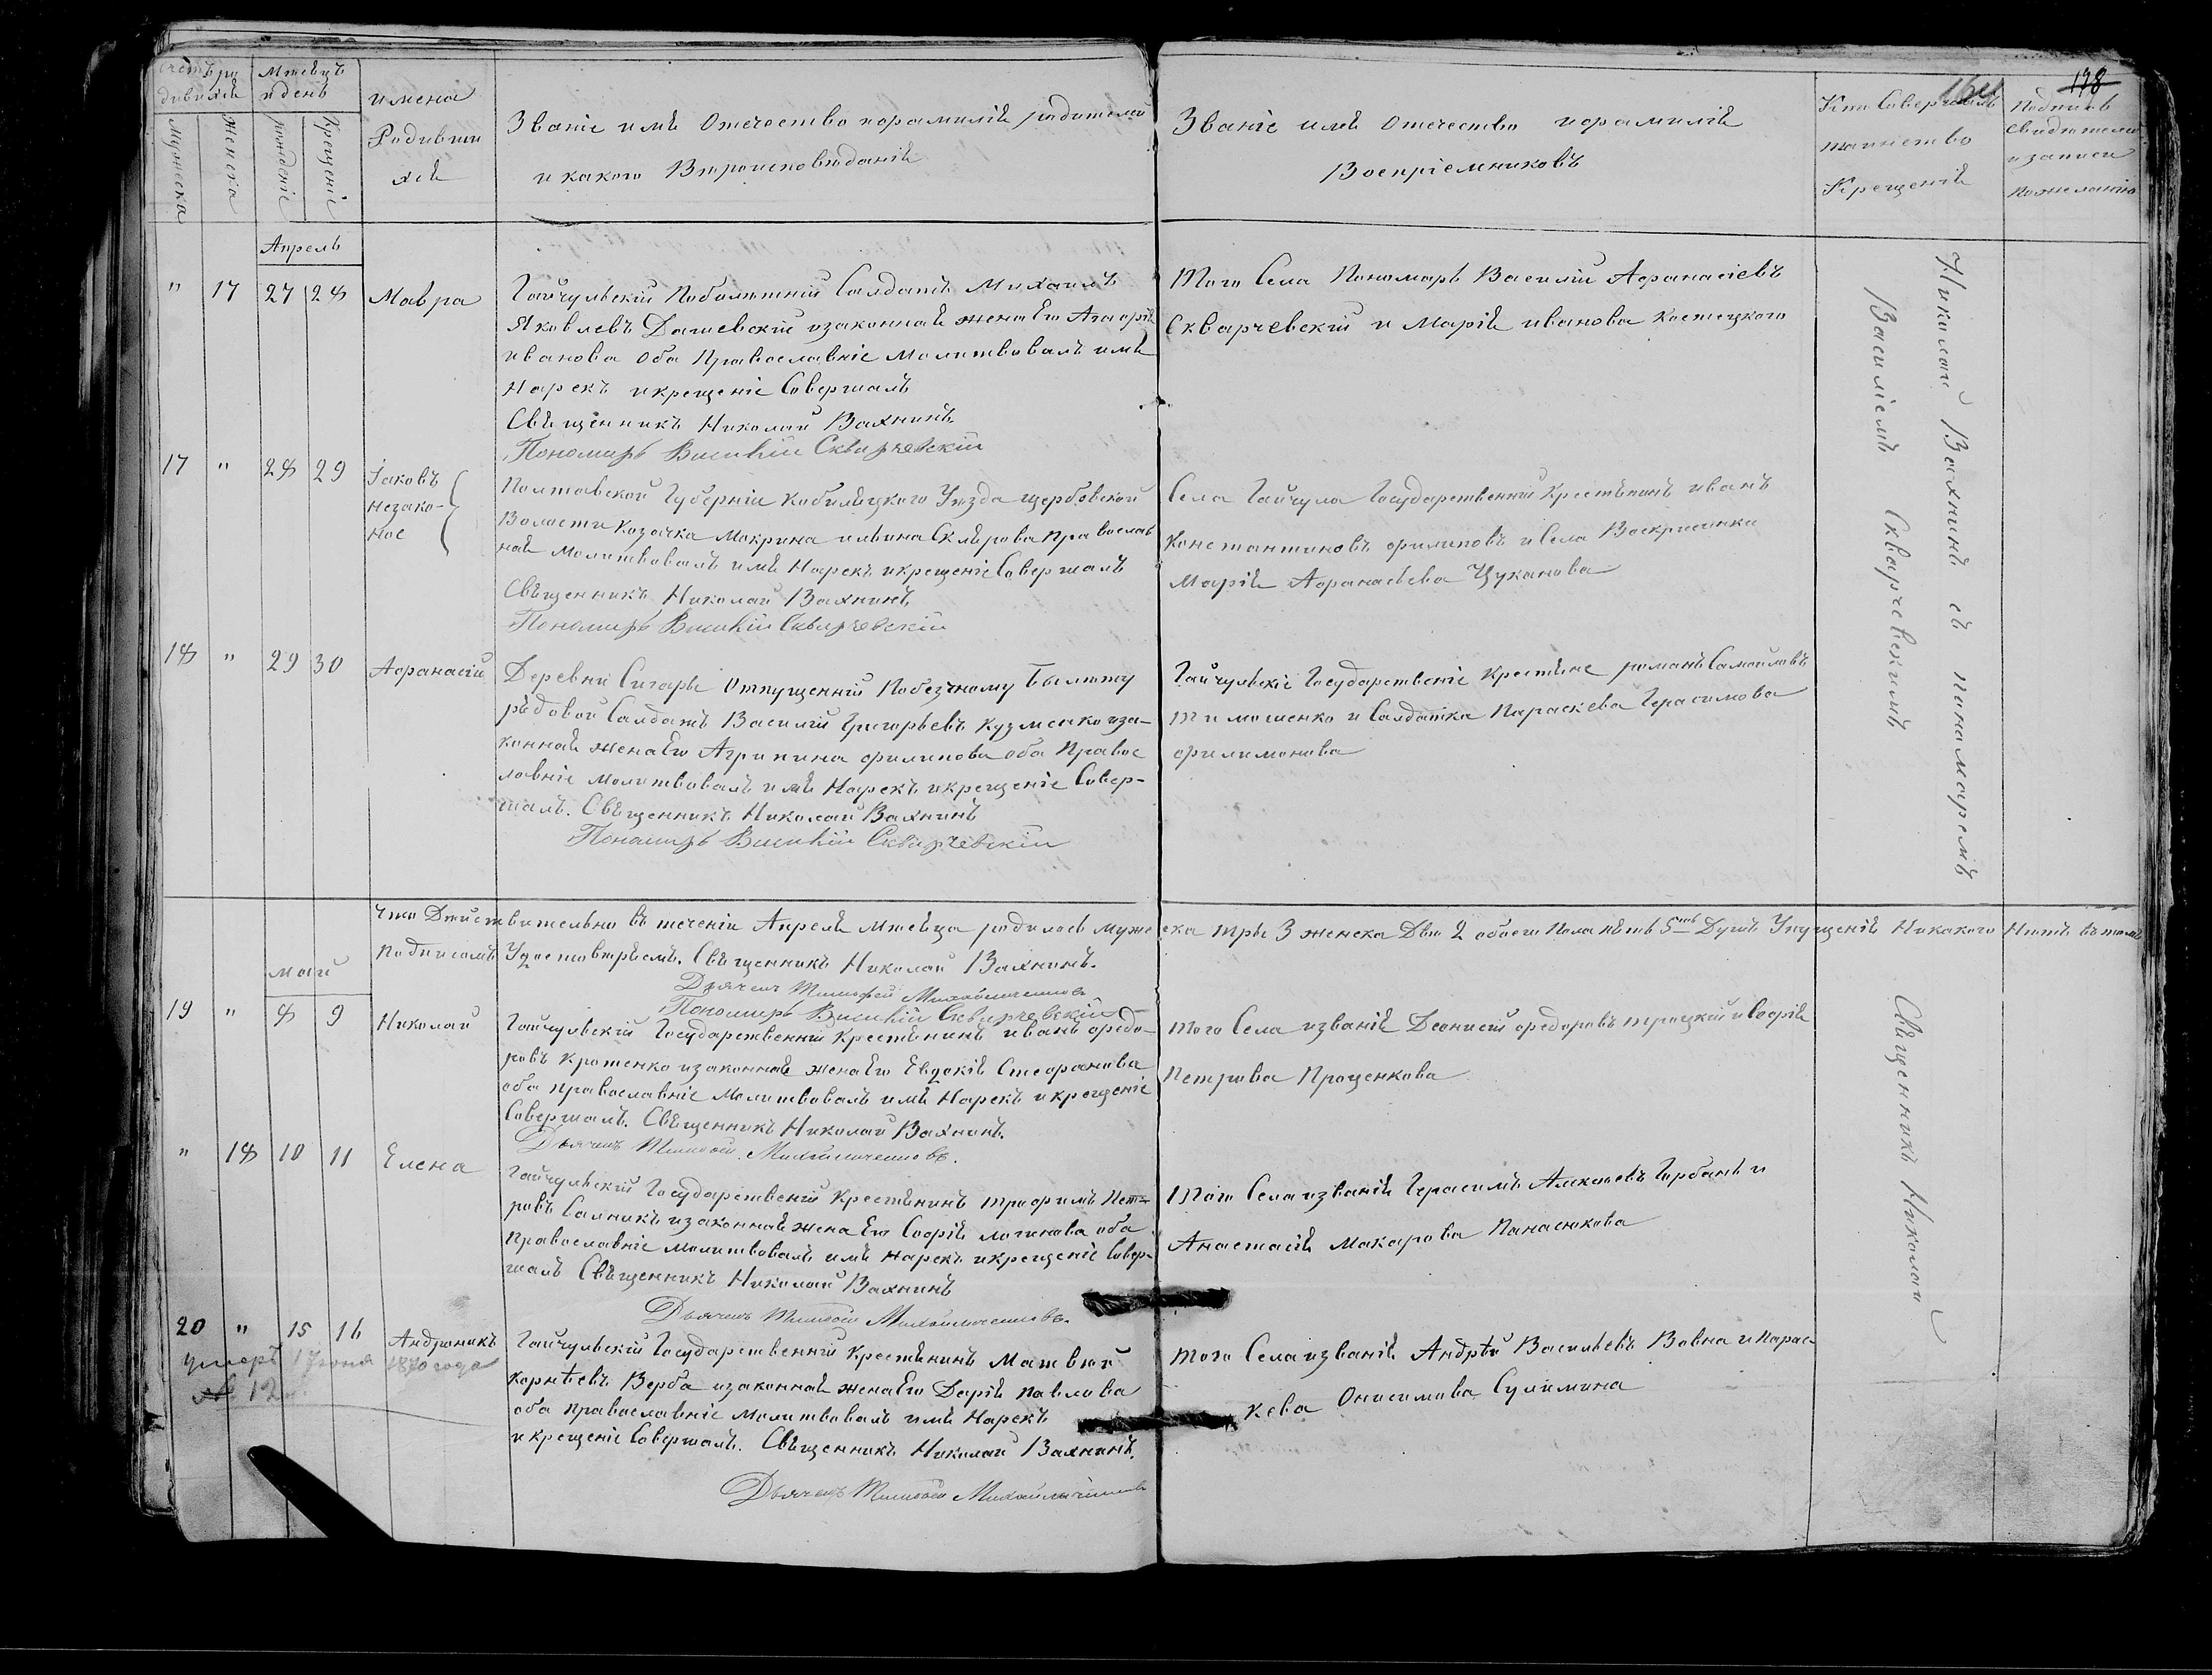 178
Счетъ ро
дивихся
Мужеска
Женска
Мѣсецъ
и день
рожденіе
Крещеніе
имена
Родивши
хся
Званіе имя Отечество и фамилія родителей
и какого Вѣроисповѣданія
Званіе имя Отечество и фамилія
Воспріемниковъ
Кто Совершалъ
таинство
Крещенія
Подпись
свидѣтелей
и записи
по желанію
Апрель
" 17 27 28 Мавра
Гайчульскій Побилетній Салдатъ Михаилъ
Яковлевъ Дашевскій и законная жена Его Агафія
иванова оба Православніе Молитвовалъ имя
Нарекъ и крещеніе Совершалъ
Свѣщенникъ Николай Вахнинъ
Пономарь Василій Скварчевскій
Того Села Пономарь Василій Афанасіевъ
Скварчевскій и Марія иванова Костецкого
17 " 28 29 Іаковъ
незако-
ное
Полтавской Губерніи Кобиляцкого Уезда щербовской
Волости Козачка Макрина ильина Склярова Православ
ная Молитвовалъ имя Нарекъ и крещеніе Совершалъ
Свѣщенникъ Николай Вахнинъ
Пономарь Василій Скварчевскій
Села Гайчула Государственній Крестянинъ иванъ
Константиновъ филиповъ и Села Воскрисинки
Марія Афанасьева Цуканова
18 " 29 30 Афанасій
Деревни Сигоры Отпущенній Побезсрочному Былету
рядовой Салдатъ Василій Григорьевъ Кузменко и за-
конная жена Его Агрипина филипова оба Правос
лавніе Молитвовалъ имя Нарекъ и крещеніе Совер-
шалъ. Свѣщенникъ Николай Вахнинъ
Пономарь Василій Скварчевскій
Гайчульскіе Государственіе Крестяне романъ Самойловъ
Тимошенко и Салдатка Параскева Герасимова
филимонова
Николай Вахнинъ съ понамаремъ
Василіемъ Скварчевскимъ
Что Дѣйствительно въ теченіи Апреля Мѣсеца родилось Мужеска тры 3 женска Двѣ 2 обоего Пола пять 5ть Душъ Упущенія Никакого Нѣтъ въ томъ
Подписомъ Удостовѣряемъ. Свѣщенникъ Николай Вахнинъ.
Дьячекъ Тимофей Михайличенковъ
Пономарь Василій Скварчевскій
май
19 " 8 9 Николай
Гайчульскій Государственній Крестянинъ иванъ федо-
ровъ Кротенко и законная жена Его Евдокія Стефанова
оба православніе Молитвовалъ имя Нарекъ и крещеніе
Совершалъ. Свѣщенникъ Николай Вахнинъ.
Дьячекъ Тимофей Михайличенковъ.
того Села и званія Деонисій федоровъ троцкій и Софія
Петрова Проценкова
" 18 10 11 Елена
Гайчульскій Государственій Крестянинъ трофимъ Пет-
ровъ Салникъ и законная жена Его Софія логинова оба
Православніе молитвовалъ имя нарекъ и крещеніе Совер-
шалъ Свѣщенникъ Николай Вахнинъ
Дьячекъ Тимофей Михайличенковъ.
Того Села и званія Герасимъ Алексеевъ Горбань и
Анастасія Макарова Панасюкова
20 " 15 16 Андроникъ
умеръ 1870 года
№ 12
Гайчульскій Государственній Крестянинъ Матвѣй
Корнѣевъ Верба и законная жена Его Дарія Павлова
оба православніе молитвовалъ имя Нарекъ
и крещеніе Совершалъ. Свѣщенникъ Николай Вахнинъ.
Дьячекъ Тимофей Михайличенковъ
того Села и званія Андрѣй Васильевъ Вовна и Парас-
кева Онисимова Сулимина
Свѣщенникъ Николай